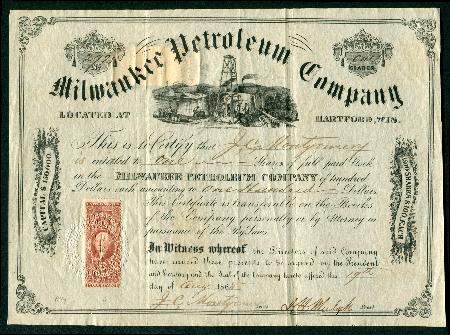 Milwaukee Petroleum Company
ONE
SHARES
LOCATED AT HARTFORD, WIS.
This is to Certify that J. C. Montgomery
is entitled to One Shares of full paid Stock
in the MILWAUKEE PETROLEUM COMPANY of hundred
Dollars each amounting to One hundred Dollars.
This Certificate is transferable on the Books
of the Company personally or by Attorney in
pursuance of the By Laws.
CAPITAL $ 150,000
In Witness whereof the Directors of said Company
have caused these presents to be signed by the President
and Secretary and the Seal of the Company hereto affixed this 19th
day of Aug 1865
J. C. Montgomery